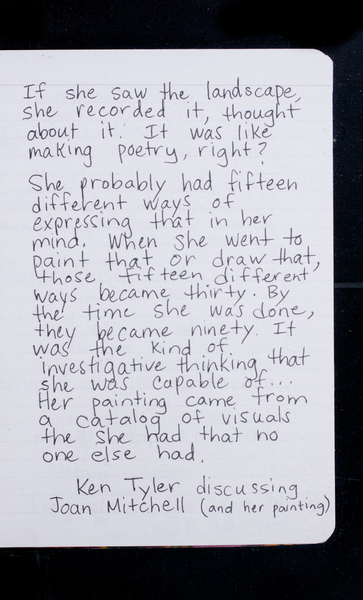 If she saw the landscape,
she recorded it, thought
about it. It was like
making poetry, right?
She probably had fifteen
different ways of
expressing that in her
mind. When she went to
paint that or draw that,
those fifteen different
ways became thirty. By
the time she was done,
they became ninety. It
was the kind of
investigative thinking that
she was capable of...
Her painting came from
a catalog of visuals
the she had that no
one else had.
Ken Tyler discussing
Joan Mitchell (and her painting)